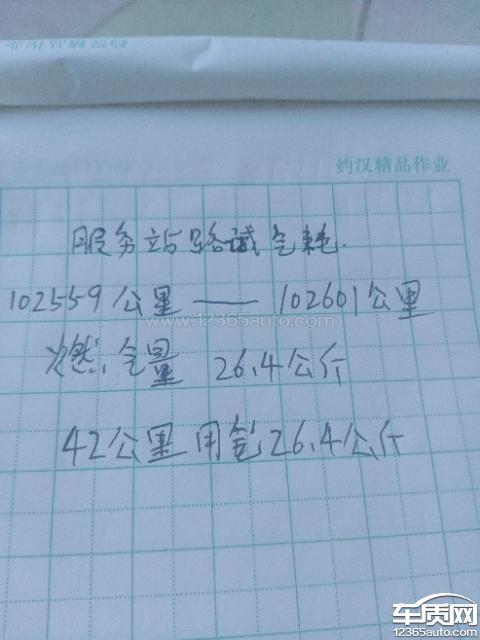 约汉精品作业
服务站路试气耗.
102559公里——102601公里
www.12365auto.com
燃气量 26.4公斤
42公里用气26.4公斤
车质网
12365auto.com